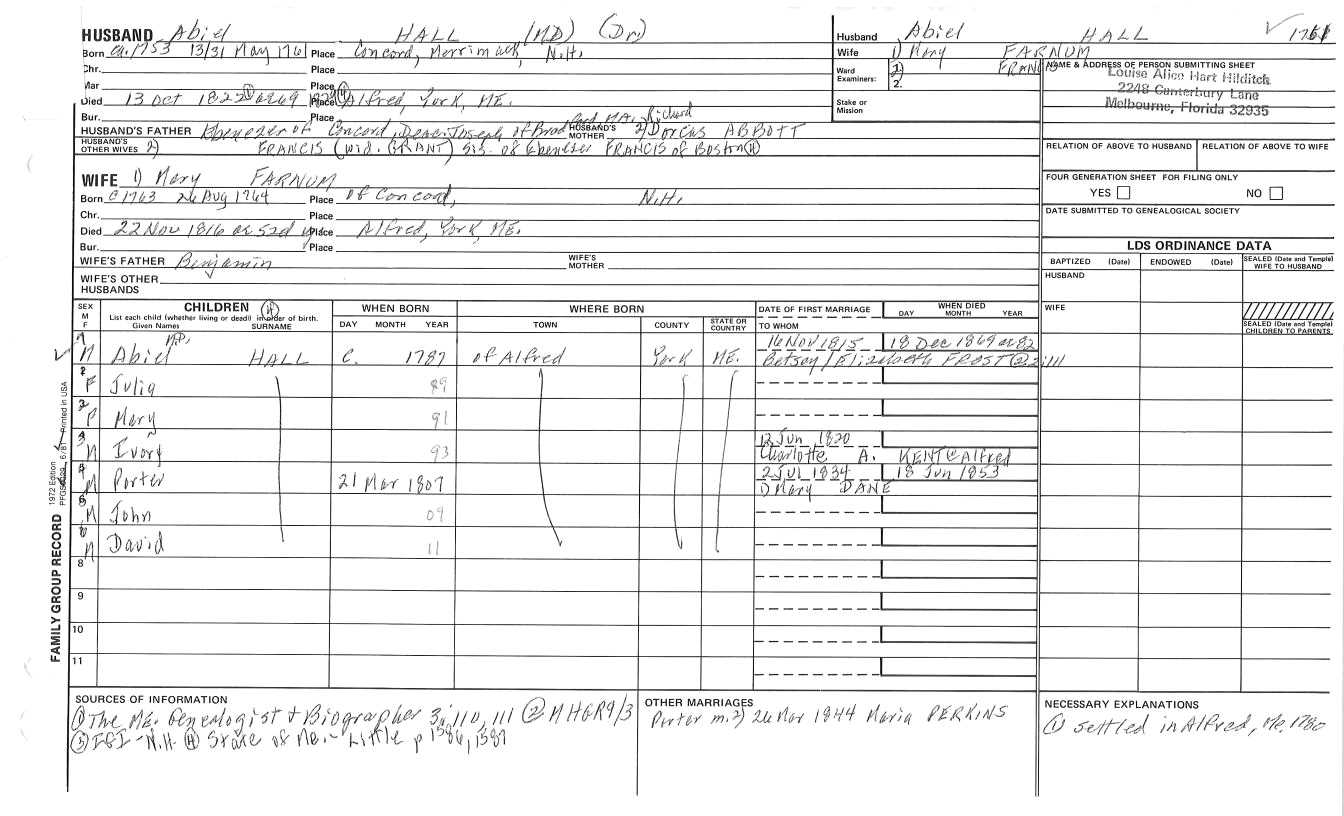 HUSBAND Abiel HALL (MD) (Dr.)
Born ca. 1753 13/31 May 1761 Place Concord, Merrimack, N.H.
Chr. Place
Mar Place
Died 13 Oct 1822 ① ae 69 1829 ④ Place Alfred, York, ME.
Bur. Place
HUSBAND'S FATHER Ebenezer of Concord, Deac. Joseph of Bradford MA. Richard HUSBAND'S MOTHER 2) Dorcas ABBOTT
HUSBAND'S OTHER WIVES 2) FRANCIS (wid. GRANT) sis. of Ebenezer FRANCIS of Boston ④
WIFE 1) Mary FARNUM
Born c 1763 26 Aug 1764 Place of Concord, N.H.
Chr. Place
Died 22 Nov 1816 ae 52d yr. Place Alfred, York, ME.
Bur. Place
WIFE'S FATHER Benjamin WIFE'S MOTHER
WIFE'S OTHER HUSBANDS
Husband Abiel HALL ✓ 1761
Wife 1) Mary FARNUM
2) FRANCIS
Ward Examiners: 1. 2.
Stake or Mission
NAME & ADDRESS OF PERSON SUBMITTING SHEET
Louise Alice Hart Hilditch
2248 Canterbury Lane
Melbourne, Florida 32935
RELATION OF ABOVE TO HUSBAND RELATION OF ABOVE TO WIFE
FOUR GENERATION SHEET FOR FILING ONLY
YES NO
DATE SUBMITTED TO GENEALOGICAL SOCIETY
LDS ORDINANCE DATA
BAPTIZED (Date) ENDOWED (Date) SEALED (Date and Temple) WIFE TO HUSBAND
HUSBAND
WIFE
SEALED (Date and Temple) CHILDREN TO PARENTS
SEX M F CHILDREN ④ List each child (whether living or dead) in order of birth. Given Names SURNAME WHEN BORN DAY MONTH YEAR WHERE BORN TOWN COUNTY STATE OR COUNTRY DATE OF FIRST MARRIAGE TO WHOM WHEN DIED DAY MONTH YEAR
1 M.D. 16 Nov 1815 18 Dec 1869 ae 82
✓ M Abiel HALL c. 1787 of Alfred York ME. Betsey/Elizabeth FROST ② 2:111
F Julia 89
F Mary 91
3 12 Jun 1820
M Ivory 93 Charlotte A. KENT @ Alfred
4 2 Jul 1834 18 Jun 1853
M Porter 21 Mar 1807 1) Mary DANE
M John 09
M David 11
8
9
10
11
FAMILY GROUP RECORD 1972 Edition 6/81 Printed in USA
SOURCES OF INFORMATION
① The ME. Genealogist & Biographer 3:110, 111 ② MHGR 9/3
③ IGI - N.H. ④ State of Me. - Little p 1586, 1587
OTHER MARRIAGES
Porter m. 2) 26 Mar 1844 Maria PERKINS
NECESSARY EXPLANATIONS
① settled in Alfred, Me. 1780